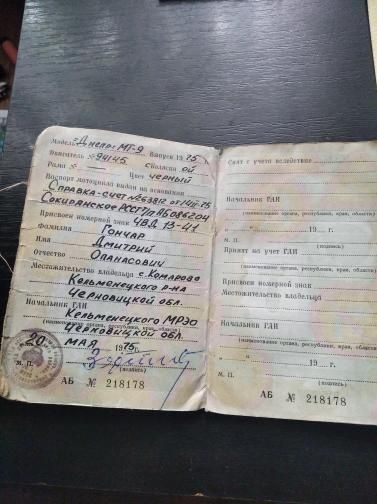 Модель „Днепр" МТ-9
Двигатель № 94145 Выпуск 1975 г.
Рама № — С коляской
Цвет черный
Паспорт мотоцикла выдан на основании
Справка-счет
Сокирянское
Присвоен номерной знак 4ВД 13-41
Фамилия Гончар
Имя Дмитрий
Отчество Опанасович
Местожительство владельца с. Комарово
Кельменецкого р-на
Черновицкой обл.
Начальник ГАИ
Кельменецкого МРЭО
(наименование органа, республики, края, области)
Черновицкой обл.
20 мая 1975 г.
М. П. (подпись)
АБ № 218178
Снят с учета вследствие
Начальник ГАИ
(наименование органа, республики, края, области)
19 г.
М. П. (подпись)
Принят на учет ГАИ
(наименование органа, республики, края, области)
Присвоен номерной знак
Местожительство владельца
Начальник ГАИ
(наименование органа, республики, края, области)
19 г.
М. П. (подпись)
АБ № 218178